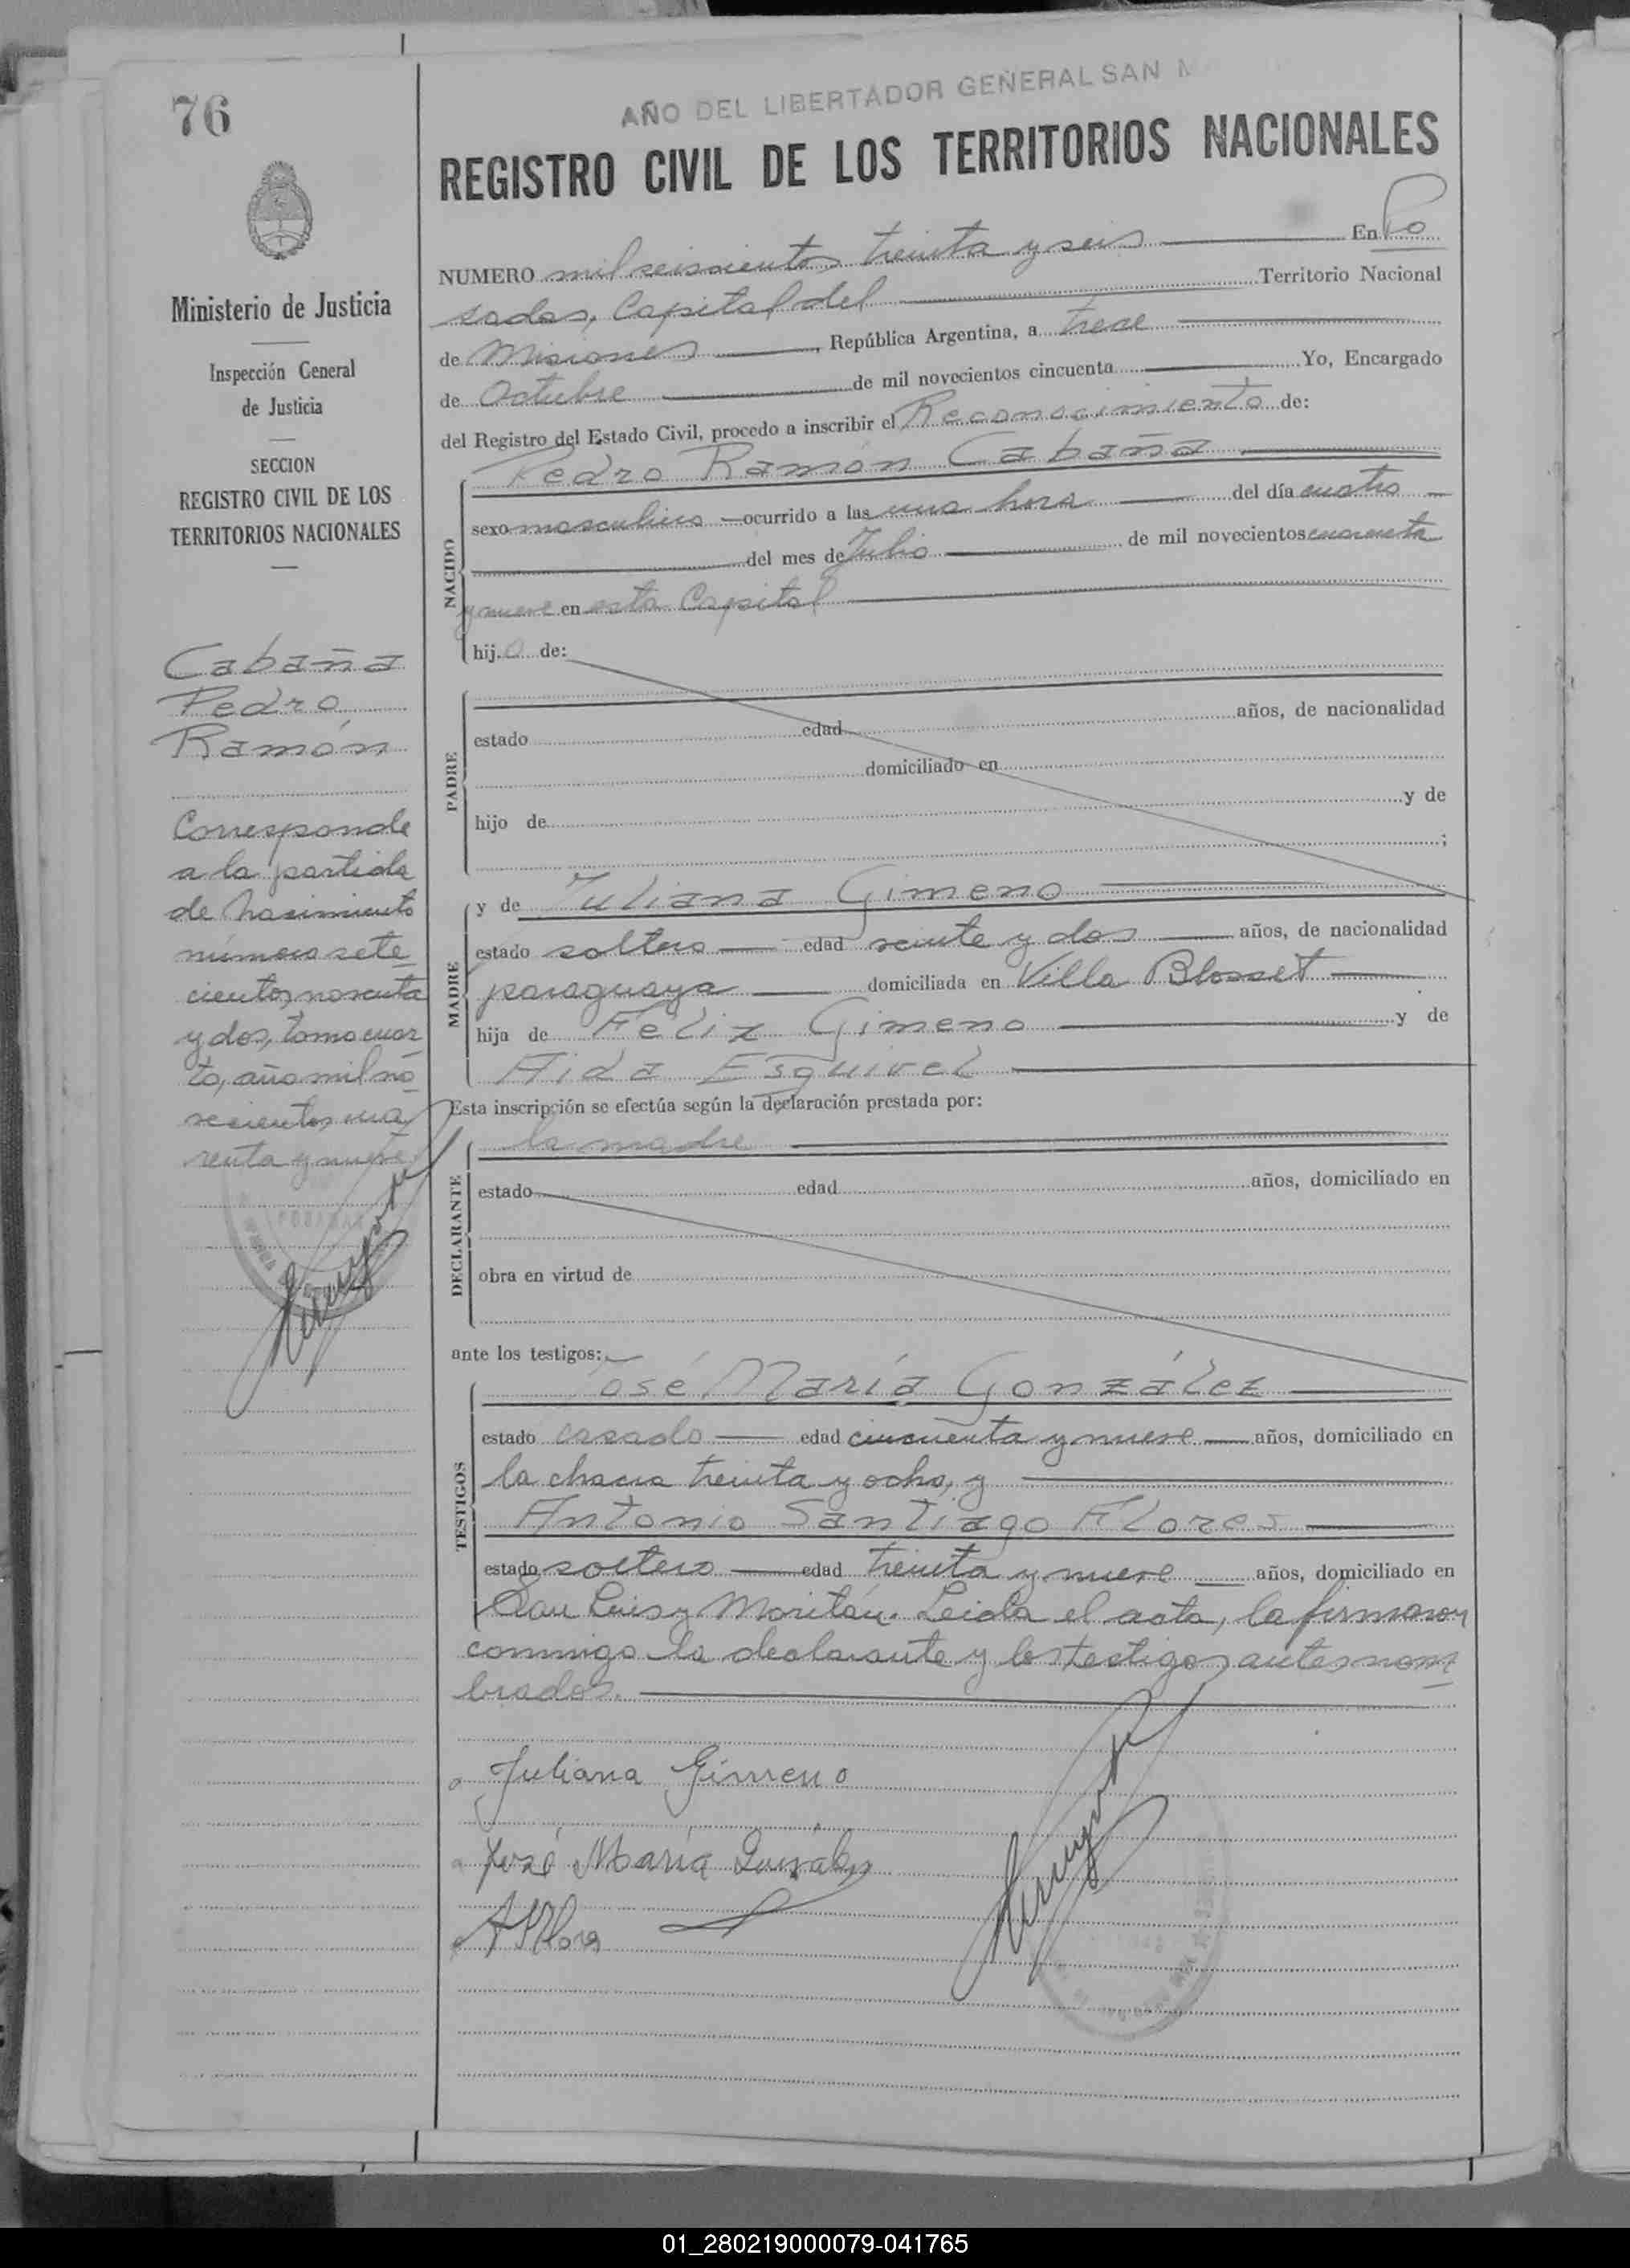 76
AÑO DEL LIBERTADOR GENERAL SAN M
REGISTRO CIVIL DE LOS TERRITORIOS NACIONALES
Ministerio de Justicia
Inspección General
de Justicia
SECCION
REGISTRO CIVIL DE LOS
TERRITORIOS NACIONALES
Cabaña
Pedro
Ramón
Corresponde
a la partida
de Nacimiento
número sete
cientos noventa
y dos, tomo cuar
to, año mil no
vecientos cua
renta y nueve.
NUMERO mil seiscientos treinta y seis En Po
sadas, Capital del Territorio Nacional
de Misiones, República Argentina, a trece
de Octubre de mil novecientos cincuenta Yo, Encargado
del Registro del Estado Civil, procedo a inscribir el Reconocimiento de:
Pedro Ramón Cabaña
NACIDO
sexo masculino ocurrido a las una hora del día cuatro
del mes de Julio de mil novecientos cuarenta
y nueve en esta Capital
hijo de:
PADRE
estado edad años, de nacionalidad
domiciliado en
hijo de y de
;
y de Juliana Gimeno
MADRE
estado soltera edad veinte y dos años, de nacionalidad
paraguaya domiciliada en Villa Blosset
hija de Feliz Gimeno y de
Aida Esquivel
Esta inscripción se efectúa según la declaración prestada por:
la madre
DECLARANTE
estado edad años, domiciliado en
obra en virtud de
ante los testigos:
José María González
TESTIGOS
estado casado edad cincuenta y nueve años, domiciliado en
la chacra treinta y ocho, y
Antonio Santiago Flores
estado soltero edad treinta y nueve años, domiciliado en
San Luis y Moritán. Leída el acta, la firmaron
conmigo la declarante y los testigos antes nom
brados.
Juliana Gimeno
José María González
A S Flores
01_280219000079-041765